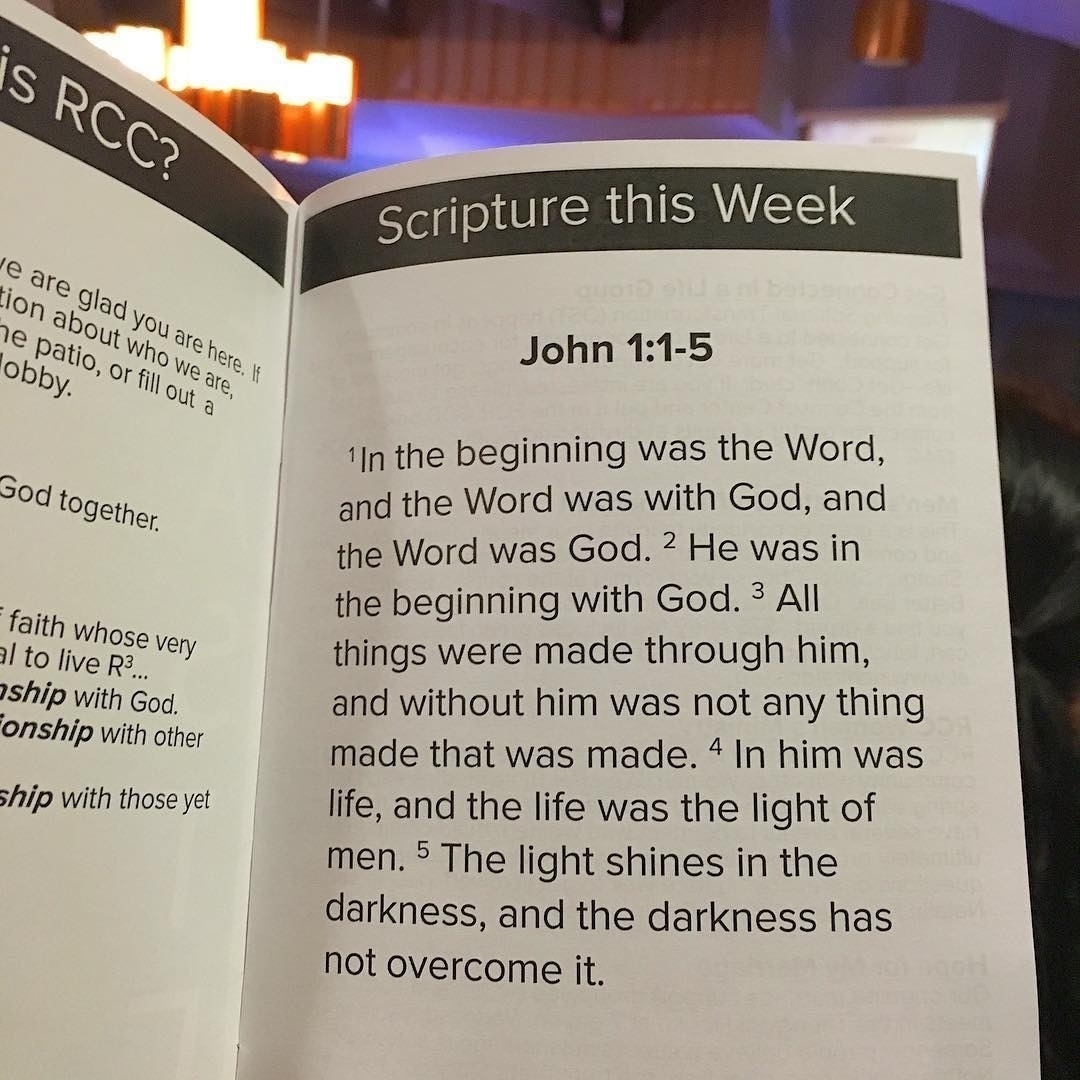 is RCC?
are glad you are here. If
about who we are,
patio, or fill out a
lobby.
God together.
faith whose very
to live R³...
with God.
with other
with those yet
Scripture this Week
John 1:1-5
¹In the beginning was the Word,
and the Word was with God, and
the Word was God. ² He was in
the beginning with God. ³ All
things were made through him,
and without him was not any thing
made that was made. ⁴ In him was
life, and the life was the light of
men. ⁵ The light shines in the
darkness, and the darkness has
not overcome it.